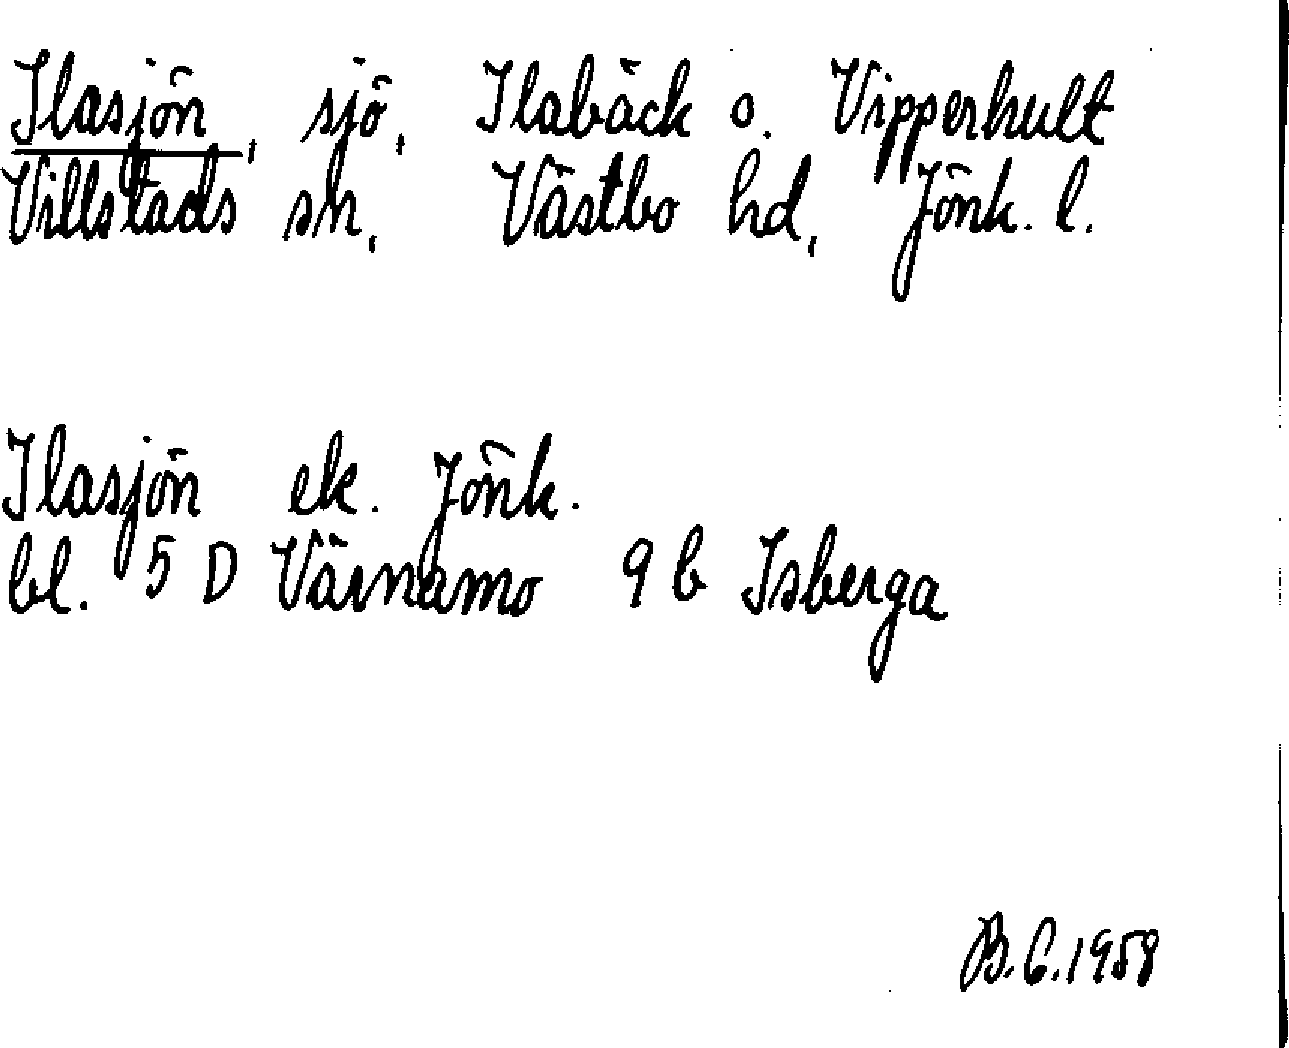 Ilasjön, sjö, Ilabäck o. Vipperhult
Villstads sn, Västbo hd, Jönk. l.
Ilasjön ek. Jönk.
bl. 5 D Värnamo 9 b Isberga
B.C. 1958